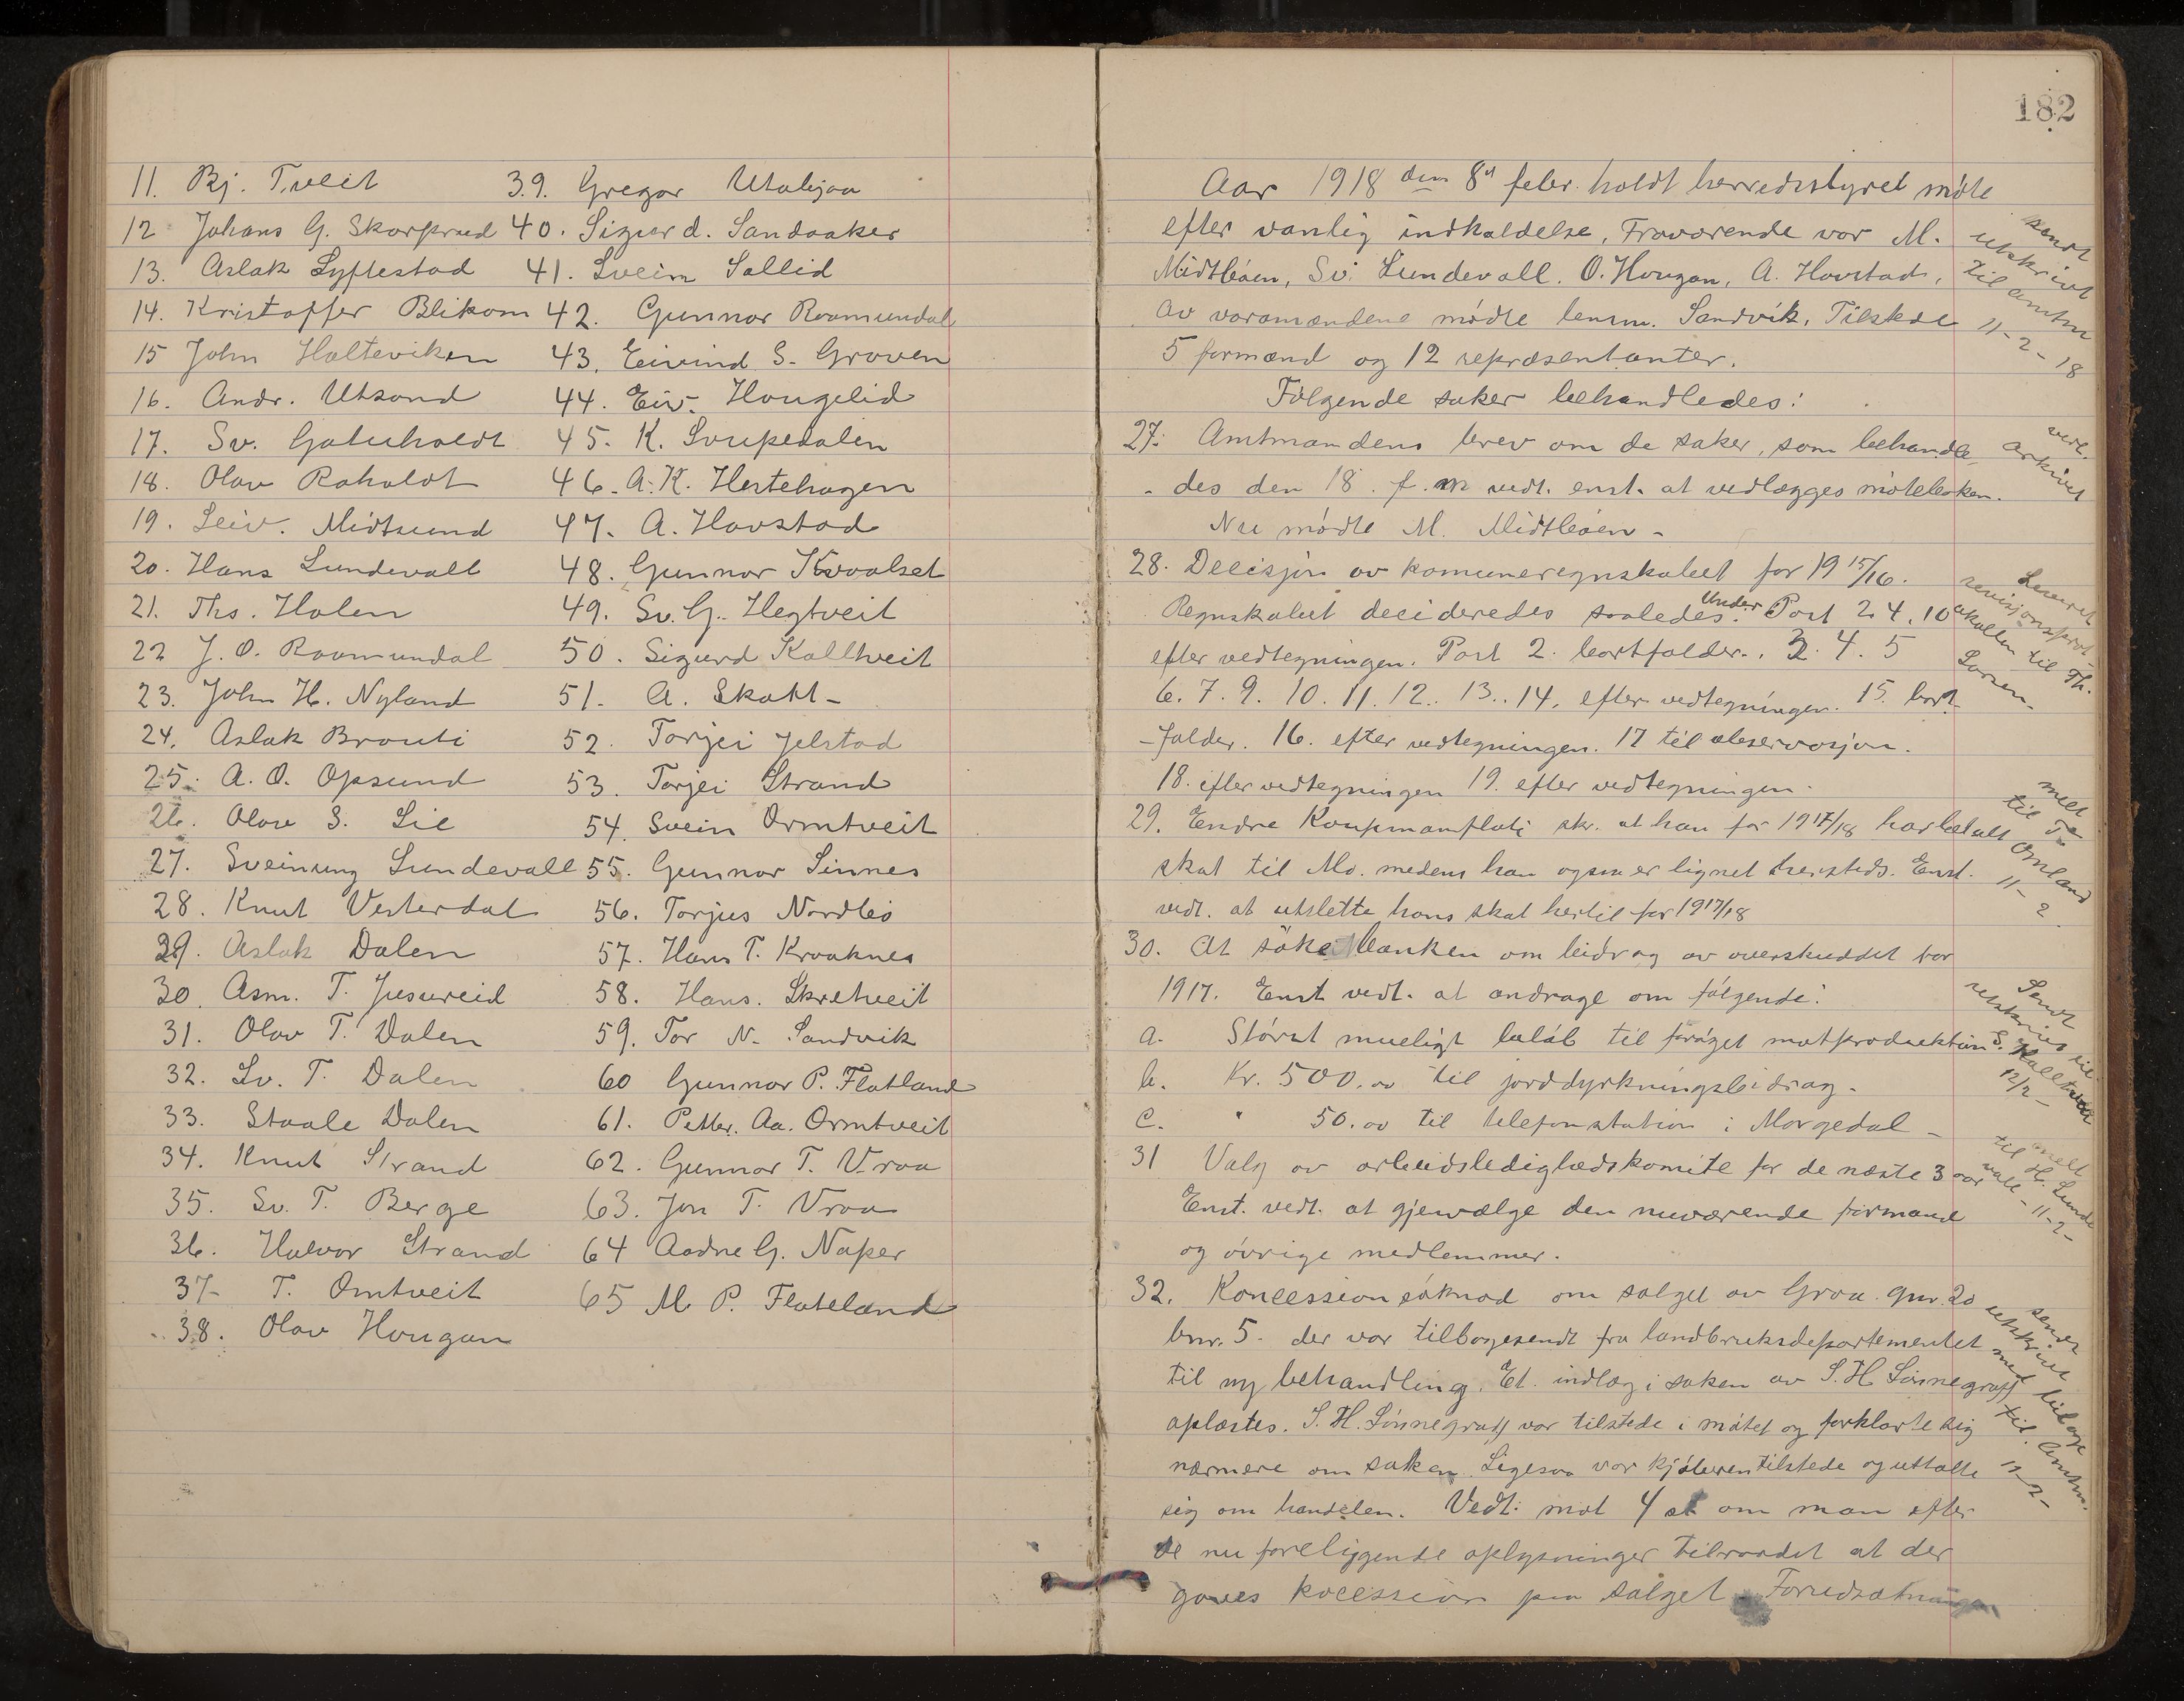 11. Bj. Tveit
12 Johans G. Skorprud
13. Aslak Lyftestad
14. Kristoffer Blikom
15 John Halteviken
16. Andr. Utsond
17. Sv. Gotuholdt
18. Olav Roholdt
19. Leiv. Midtsund
20. Hans Lundevall
21. Ths. Holen
22 J. O. Raamundal
23. John H. Nyland
24. Aslak Brauti
25. A. O. Opsund
26. Olav S. Lie
27. Sveinung Lundevall
28. Knut Vesterdal
29. Aslak Dalen
30. Asm. T. Jusureid
31. Olav T. Dalen
32. Sv. T. Dalen
33. Staale Dalen
34. Knut Strand
35. Sv. T. Berge
36. Halvor Strand
37- T. Omtveit
38. Olav Hougan
39. Gregar Utabjaa
40. Sigurd. Sandaaker
41. Svein Sallid
42. Gunnar Raamundal
43. Eivind S. Groven
44. Eiv. Hougelid
45. K. Loupedalen
46. A. K. Hestehagen
47. A. Hovstad
48. Gunnar Kvaalset
49. Sv. G. Hegtveit
50. Sigurd Kalltveit
51. A. Skatt-
52. Torjei Jelstad
53. Torjei Strand
54. Svein Ormtveit
55. Gunnar Sinnes
56. Torjus Nordbø
57. Hans T. Kraaknes
58. Hans. Skretveit
59. Tor N. Sandvik
60 Gunnar P. Flatland
61. Petter. Aa. Ormtveit
62. Gunnar T. Vraa
63. Jon T. Vraa
64 Aadne G. Naper
65 M. P. Flateland
182
Aar 1918 den 8d febr. holdt herredsstyret møte
efter vanlig indkaldelse, Fraværende var M.
Midtbøen, Sv. Lundevall. O. Hougan, A. Hovstad,
av varamændene mødte lensm. Sandvik. Tilstede
5 formænd og 12 repræsentanter.
sendt
utskrivt
til amtm
11-2-18
Følgende saker behandledes:
27. Amtmandens brev om de saker, som behandle-
- des den 18. f. m vedt. enst. at vedlægges møteboken.
vedl.
arkivet
Nu mødte M. Midtbøen -
28. Decisjon av komuneregnskabet for 1915/16.
Regnskabet decideredes saaledes: Under Post 2 4. 10
efter vedtegningen. Post 2. bortfalder. 3. 4. 5
6. 7. 9. 10. 11. 12. 13. 14. efter vedtegningen. 15. bort-
-falder. 16. efter vedtegningen. 17 til observasjon.
18. efter vedtegningen 19. efter vedtegningen.
Leveret
revisjonsprot-
okollen til Th.
29. Endre Kaupmamflati skr. at han for 1917/18 har betalt
skat til Mo. medens han ogsaa er lignet hersteds. Enst.
vedt. at utslette hans skat hertil for 1917/18
melt
til T.
Omland
11-2
30. At søke banken om bidrag av overskuddet for
1917. Enst vedt. at andrage om følgende:
a. Størst mueligt beløb til forøget matproduktion
b. Kr. 500,00 til jorddyrkningsbidrag.
c. " 50.00 til telefonstation i Morgedal -
Sendt
utskrivt til
S. Kalltveit
12/2-
31 Valg av arbeidsledighedskomite for de næste 3 aar
Enst. vedt. at gjenvælge den nuværende formand
og øvrige medlemmer.
melt
til H. Lunde
vall - 11-2-
32. Koncessionsøknad om salget av Groa gnr. 20
bnr. 5. der var tilbagesendt fra landbruksdepartementet
til ny behandling. Et indlæg i saken av S. H. Sønnegraff
oplæstes. S. H. Sønnegraff var tilstede i møtet og forklarte sig
nærmere om saken. Ligesaa var kjøberen tilstede og uttalte
sig om handelen. Vedt. mot 4 st om man efter
de nu foreliggende oplysninger tilraadet at der
gaves kocession paa salget Forudsætningen
sendt
utskrivt
med bilage
til amtm.
12-2-